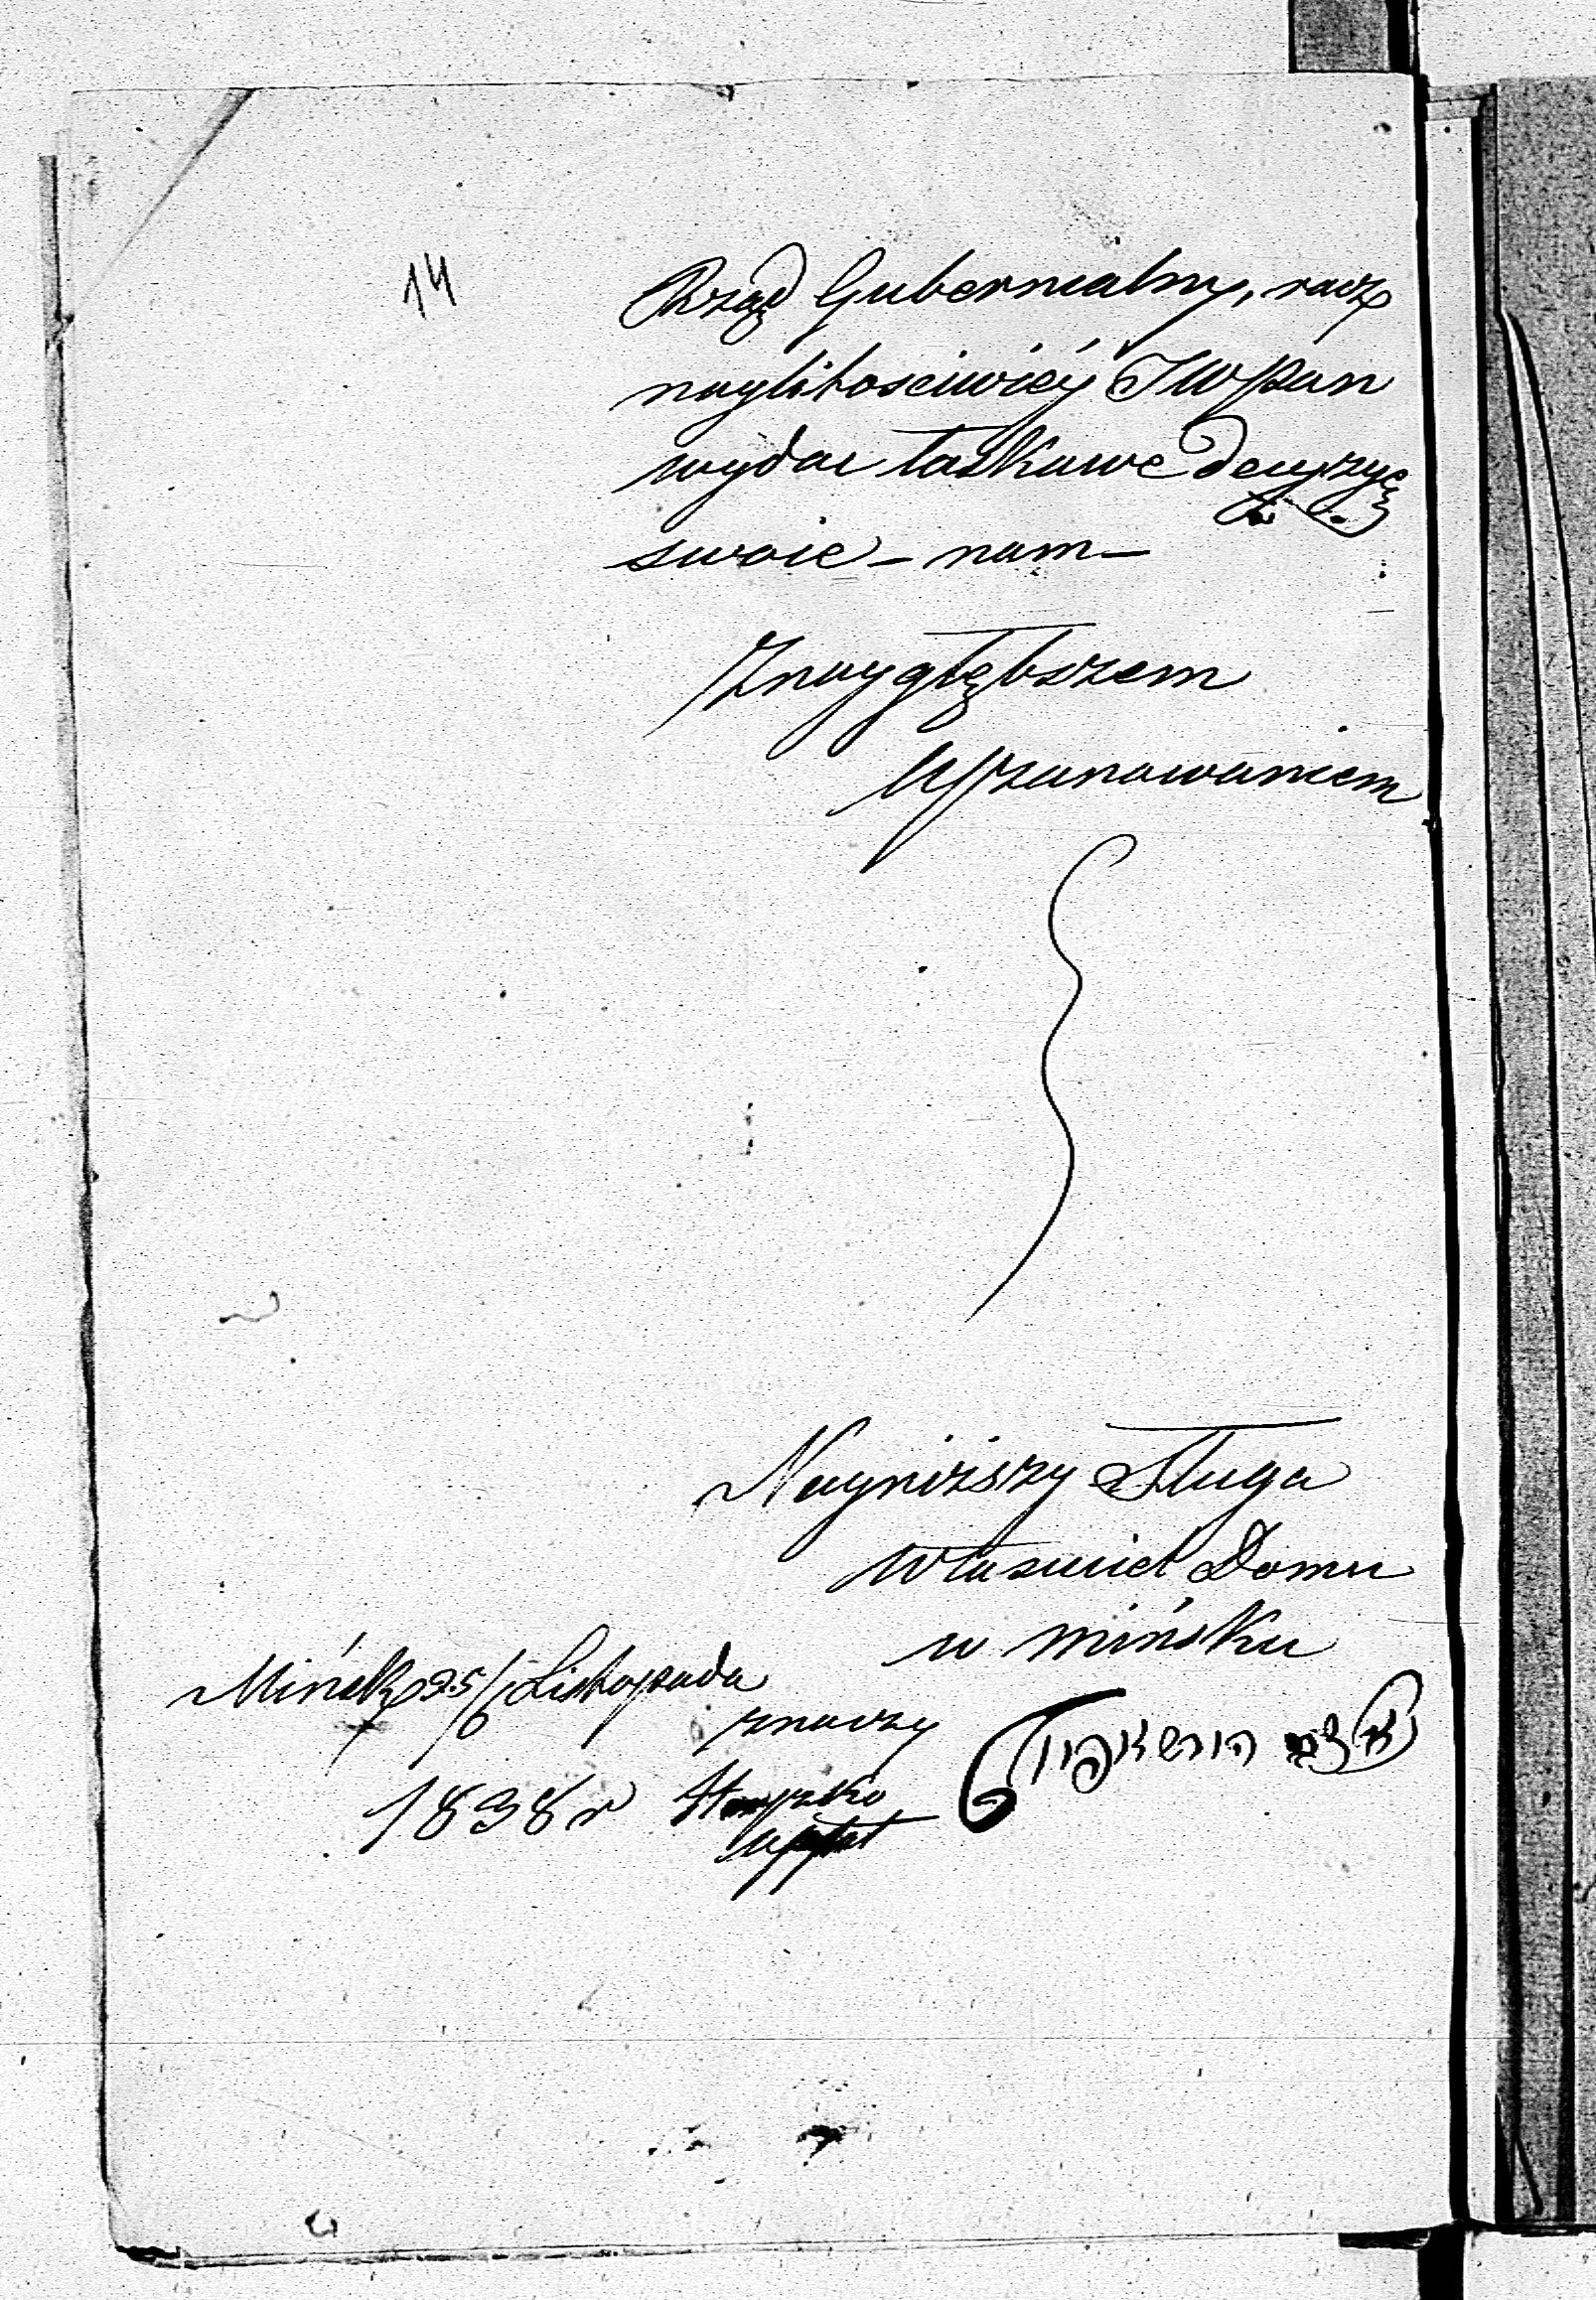 14
Rząd Gubernialny, racz
naylitosciwiéy JW Pan
wydac łaskawe decyzyę
swoie – nam –
Z naygłębszem
Uszanowaniem
Nayniższy Sługa
Własciciel Domu
w Mińsku
Mińsk 25/6 Listopada
1838 r
znaczy